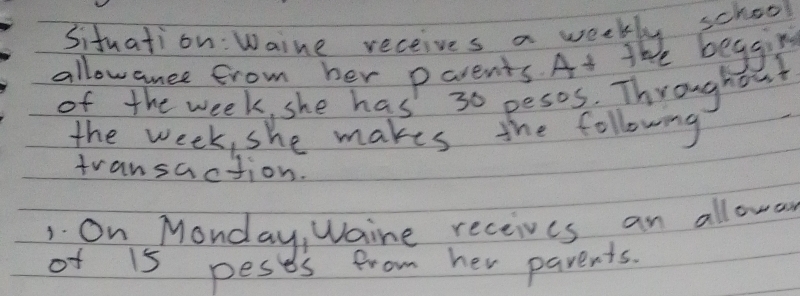 Situation: Waine receives a weekly school
allowance from her parents. At the beggin
of the week, she has 30 pesos. Throughout
the week, she makes the following
transaction.
1. On Monday, Waine receives an allowan
of 15 pesos from her parents.